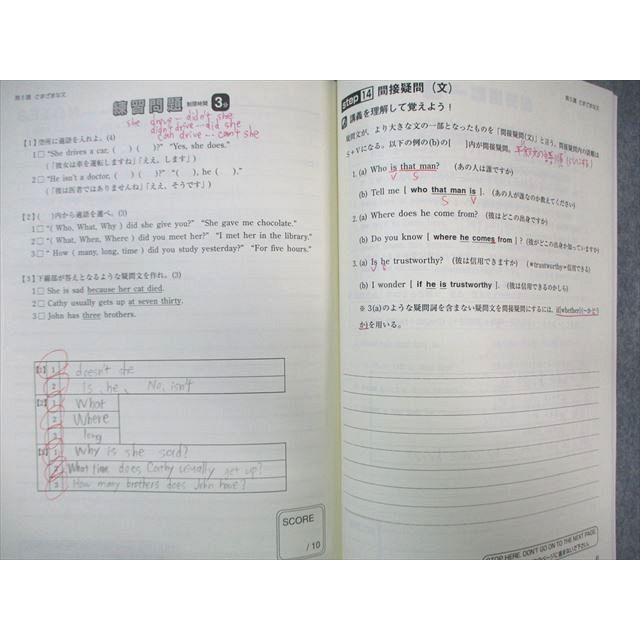 第5講 さまざまな文
練習問題 制限時間 3分
she drive - didn't she
didn't drive --- did she
can drive --- can't she
【1】空所に適語を入れよ。(4)
1□ “She drives a car, (   ) (   )?” “Yes, she does.”
(「彼女は車を運転しますね」「ええ，します」)
2□ “He isn't a doctor, (   ) (   )?” “(   ), he (   ).”
(「彼は医者ではありませんね」「ええ，そうです」)
【2】(   )内から適語を選べ。(3)
1□ “( Who, What, Why ) did she give you?” “She gave me chocolate.”
2□ “( What, When, Where ) did you meet her?” “I met her in the library.”
3□ “How ( many, long, time ) did you study yesterday?” “For five hours.”
【3】下線部が答えとなるような疑問文を作れ。(3)
1□ She is sad because her cat died.
2□ Cathy usually gets up at seven thirty.
3□ John has three brothers.
【1】 1 doesn't she
2 Is, he, No, isn't
【2】 1 What
2 Where
3 long
【3】 1 Why is she sad?
2 What time does Cathy usually get up?
3 How many brothers does John have?
SCORE
/ 10
第5講 さまざまな文
step 14 間接疑問（文）
講義を理解して覚えよう！
疑問文が，より大きな文の一部となったものを「間接疑問(文)」と言う。間接疑問内の語順は
S＋Vになる。以下の例の(b)の[   ]内が間接疑問。
1. (a) Who is that man? (あの人は誰ですか)
V S
(b) Tell me [ who that man is ]. (あの人が誰なのか教えてください)
S V
2. (a) Where does he come from? (彼はどこの出身ですか)
(b) Do you know [ where he comes from ] ? (彼がどこの出身か知っていますか)
3. (a) Is he trustworthy? (彼は信用できますか) (＊trustworthy=信用できる)
V S
(b) I wonder [ if he is trustworthy ]. (彼は信用できるのかしら)
※ 3(a)のような疑問詞を含まない疑問文を間接疑問にするには, if[whether](～かどう
か)を用いる。
STOP HERE. DON'T GO ON TO THE NEXT PAGE.